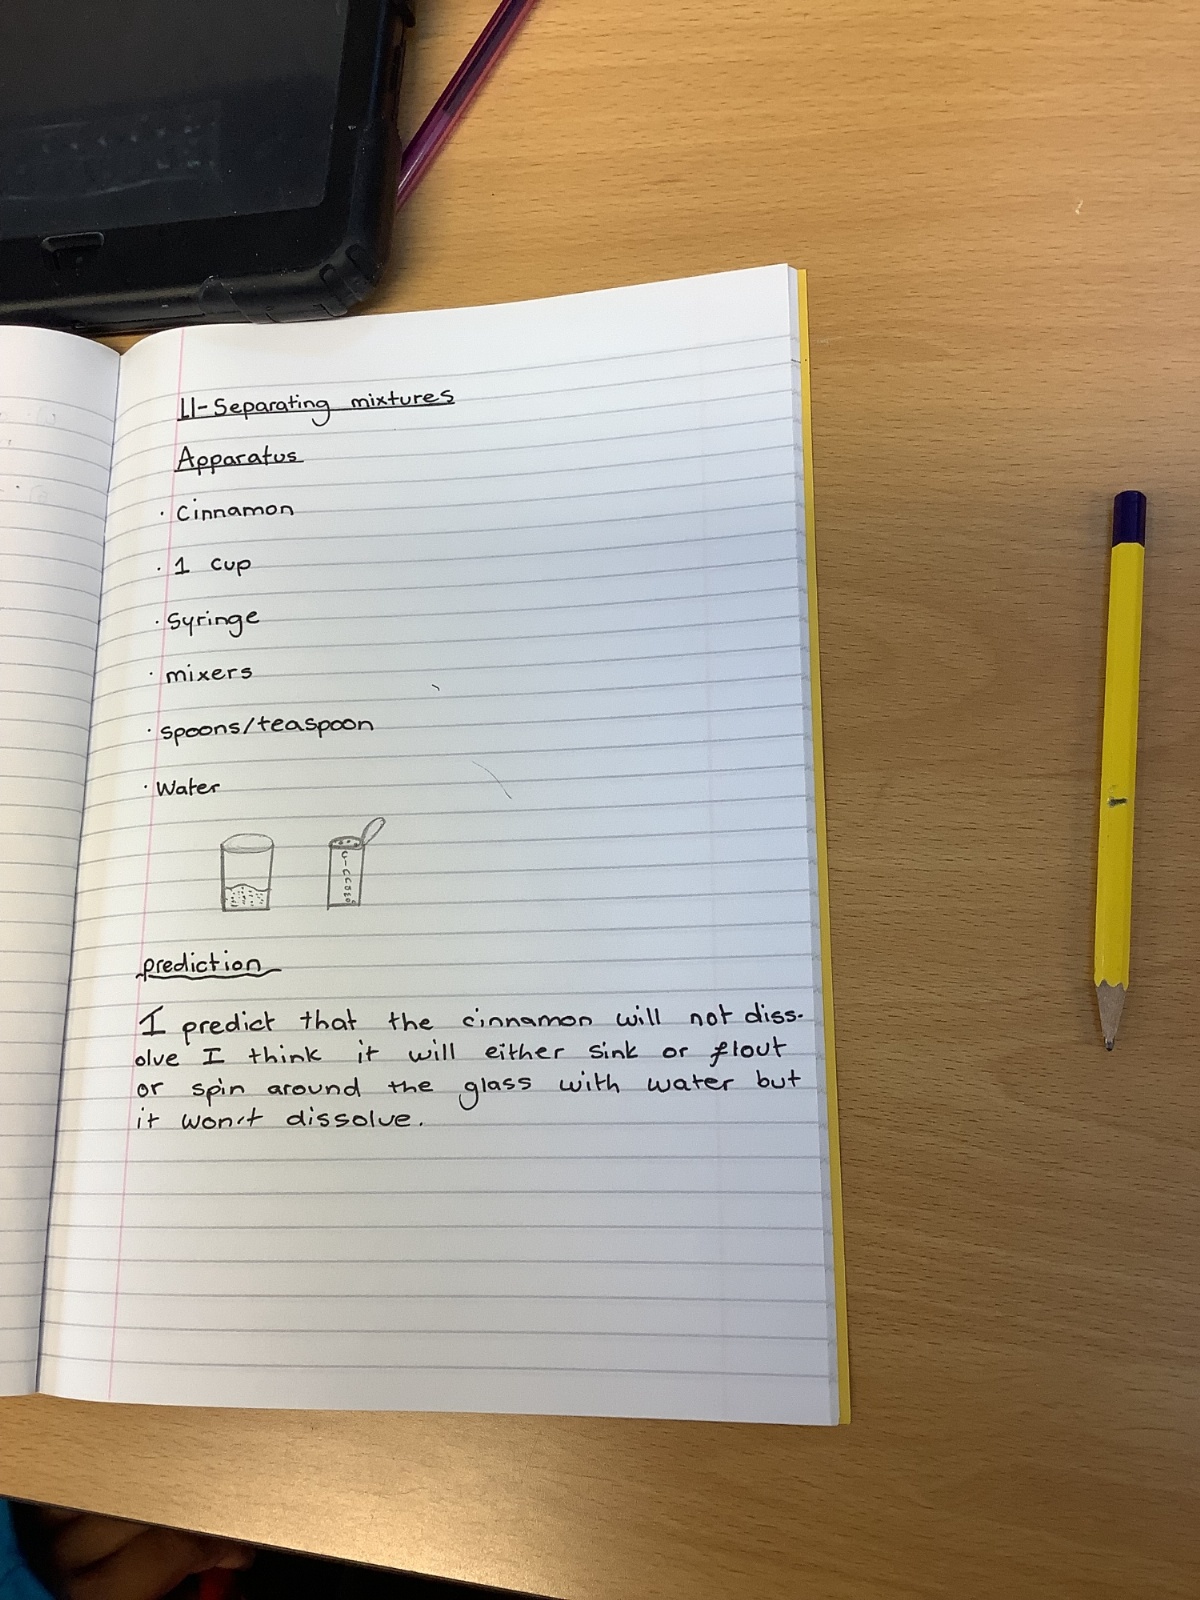 LI-Separating mixtures
Apparatus
· Cinnamon
· 1 cup
· Syringe
· mixers
· spoons/teaspoon
· Water
prediction
I predict that the cinnamon will not diss-
olve I think it will either sink or flout
or spin around the glass with water but
it won't dissolve.